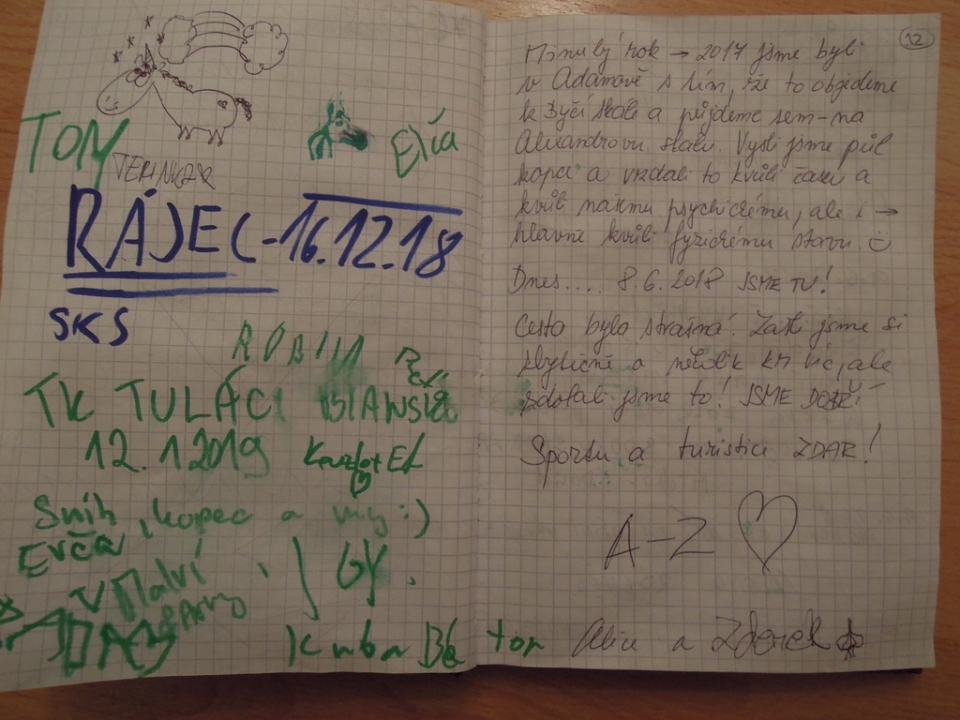 TOM
Elia
TERINKA
RÁJEC-16.12.18
SKS
ROBIN
TK TULÁCI
12.1.2019
Sníh, kopec a my :)
Evča
Kuba Bé ton
12
Minulý rok → 2017 jsme byli
v Adamově s tím, že to objedeme
k Býčí skále a půjdeme sem-na
Alexandrovu . Vyšli jsme půl
kopce a vzdali to kvůli času a
kvůli našemu psychickému, ale i →
hlavně kvůli fyzickému stavu
Dnes.... 8.6.2018 JSME TU!
Cesta byla strašná! Zašli jsme si
zbytečně a několik km víc, ale
zdolali jsme to! JSME DOBŘÍ!
Sportu a turistice ZDAR!
A-Z
Alice a Zdeněk